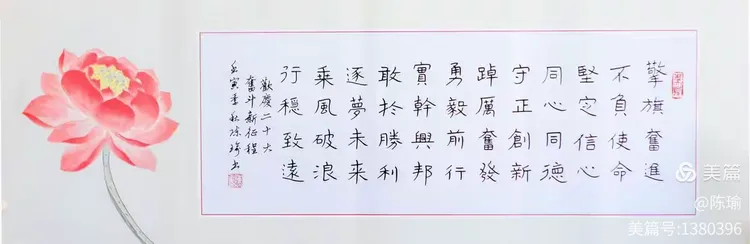 擎旗奮進
不負使命
堅定信心
同心同德
守正創新
踔厲奮發
勇毅前行
實幹興邦
敢於勝利
逐夢未来
乘風破浪
行穩致遠
歡度二十大
奮斗新征程
壬寅季秋陈瑜书
美篇
@陈瑜
美篇号:1380396